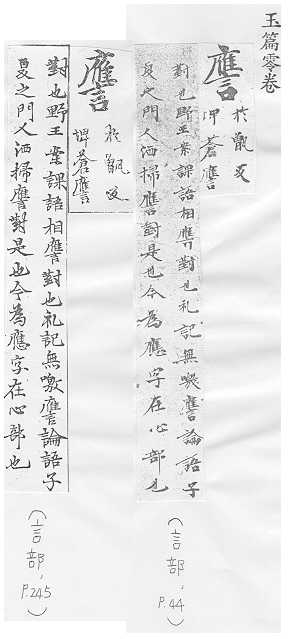 玉篇零卷
譍
於甑反
埤蒼譍
對也野王案課語相譍對也礼記無噭譍論語子
夏之門人洒掃譍對是也今為應字在心部也
(言部, P.44)
譍
於甑反
埤蒼譍
對也野王案課語相譍對也礼記無噭譍論語子
夏之門人洒掃譍對是也今為應字在心部也
(言部, P.245)